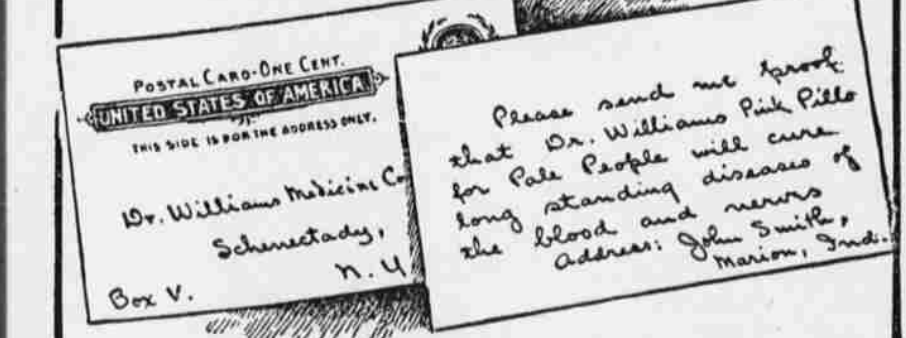 POSTAL CARD-ONE CENT.
UNITED STATES OF AMERICA
THIS SIDE IS FOR THE ADDRESS ONLY.
Dr. Williams Medicine Co
Schenectady,
N. Y
Box V.
Please send me proof
that Dr. Williams Pink Pills
for Pale People will cure
long standing diseases of
the blood and nerves
Address: John Smith,
Marion, Ind.